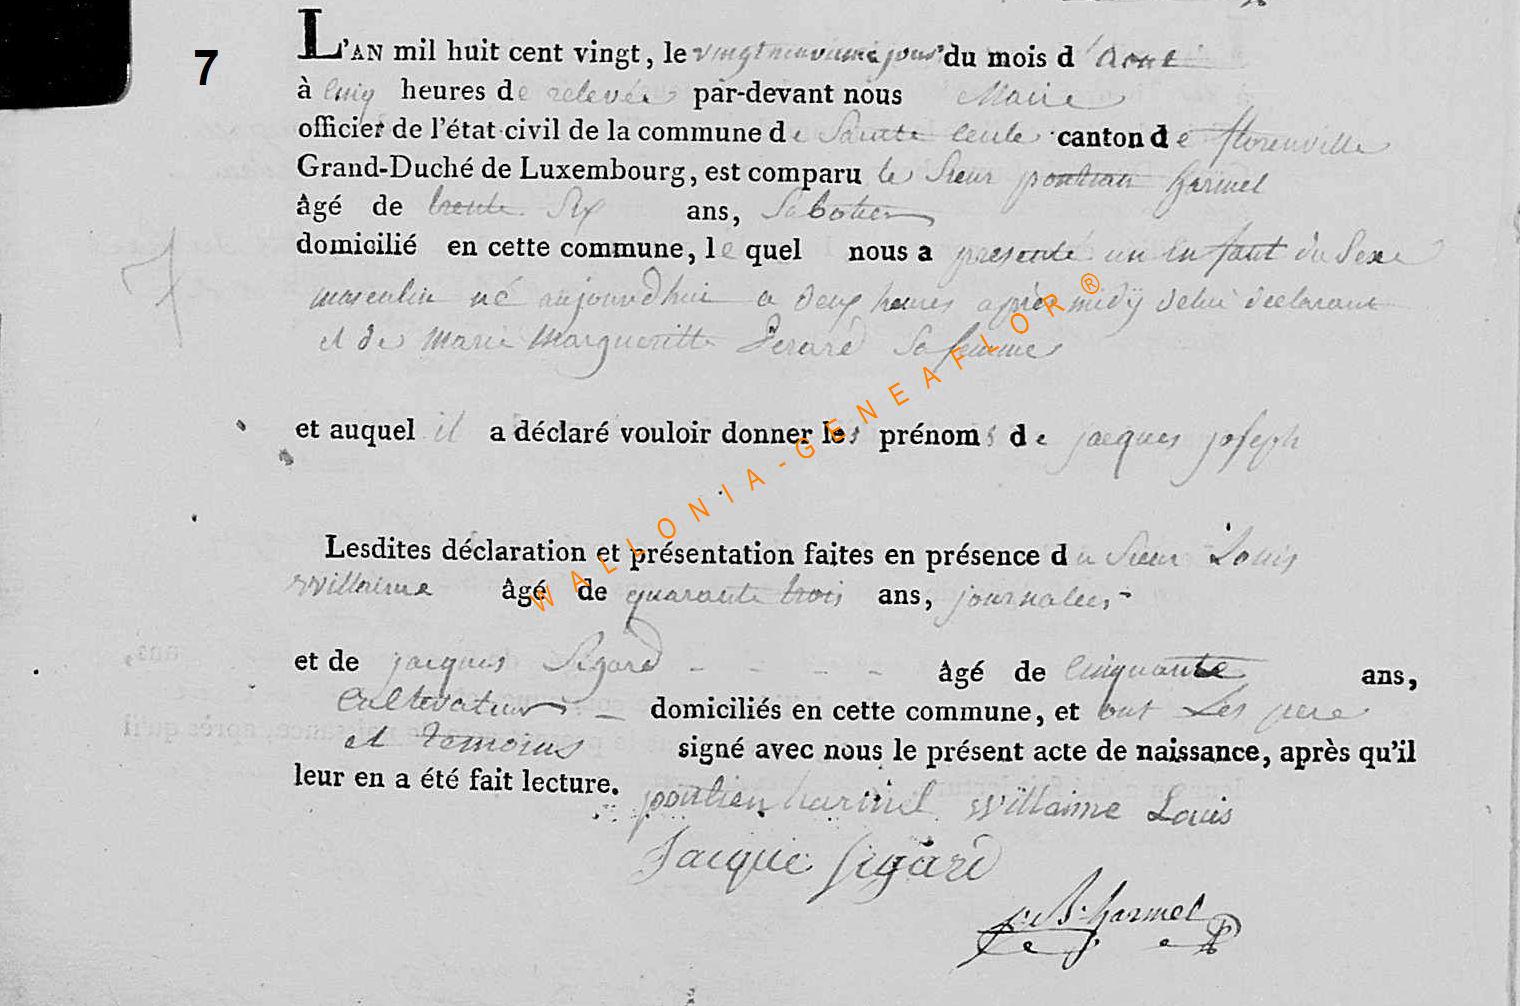 7
L'AN mil huit cent vingt, le vingt neuvieme jour du mois d'Aout
à cinq heures de relevée par-devant nous Maire
officier de l'état civil de la commune de Sainte Cecile canton de florenville
Grand-Duché de Luxembourg, est comparu le Sieur pontian harmel
âgé de trente Six ans, Sabotier
domicilié en cette commune, lequel nous a presenté un Enfant du Sexe
masculin né aujourdhui a deux heures après midÿ de lui declarant
et de Marie Margueritte Gerard Sa femme
et auquel il a déclaré vouloir donner les prénoms de jacques joseph
Lesdites déclaration et présentation faites en présence du Sieur Louis
Willaime âgé de quarante trois ans, journalier
et de jacques Sigard - - - - âgé de Cinquante ans,
Cultivateur - domiciliés en cette commune, et ont Les pere
et temoins signé avec nous le présent acte de naissance, après qu'il
leur en a été fait lecture.
pontien harmel Willaime Louis
Jacque Sigard
harmel
WALLONIA-GENEAFLOR®